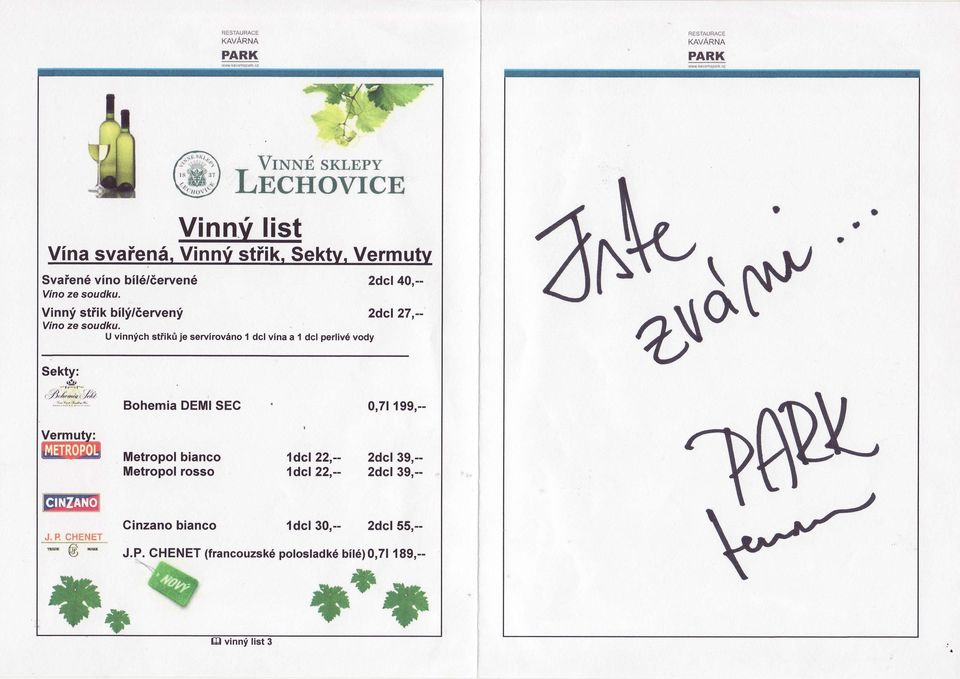 RESTAURACE
KAVÁRNA
PARK
www.kavarnapark.cz
VINNÉ SKLEPY
18 37
LECHOVICE
VINNÉ SKLEPY
LECHOVICE
Vinný list
Vína svařená, Vinný střik, Sekty, Vermuty
Svařené víno bílé/červené 2dcl 40,--
Víno ze soudku.
Vinný střik bílý/červený 2dcl 27,--
Víno ze soudku.
U vinných střiků je servírováno 1 dcl vína a 1 dcl perlivé vody
Sekty:
Bohemia Sekt
Bohemia DEMI SEC 0,7l 199,--
Vermuty:
METROPOL
Metropol bianco 1dcl 22,-- 2dcl 39,--
Metropol rosso 1dcl 22,-- 2dcl 39,--
CINZANO
Cinzano bianco 1dcl 30,-- 2dcl 55,--
J. P. CHENET
TRADE MARK
J.P. CHENET (francouzské polosladké bílé) 0,7l 189,--
NOVÝ
vinný list 3
RESTAURACE
KAVÁRNA
PARK
www.kavarnapark.cz
Jste
zváni...
PARK